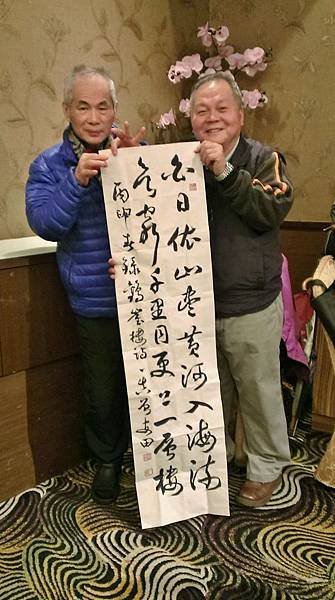 白日依山盡黃河入海流
欲窮千里目更上一層樓
丙申春錄鸛雀樓詩一首